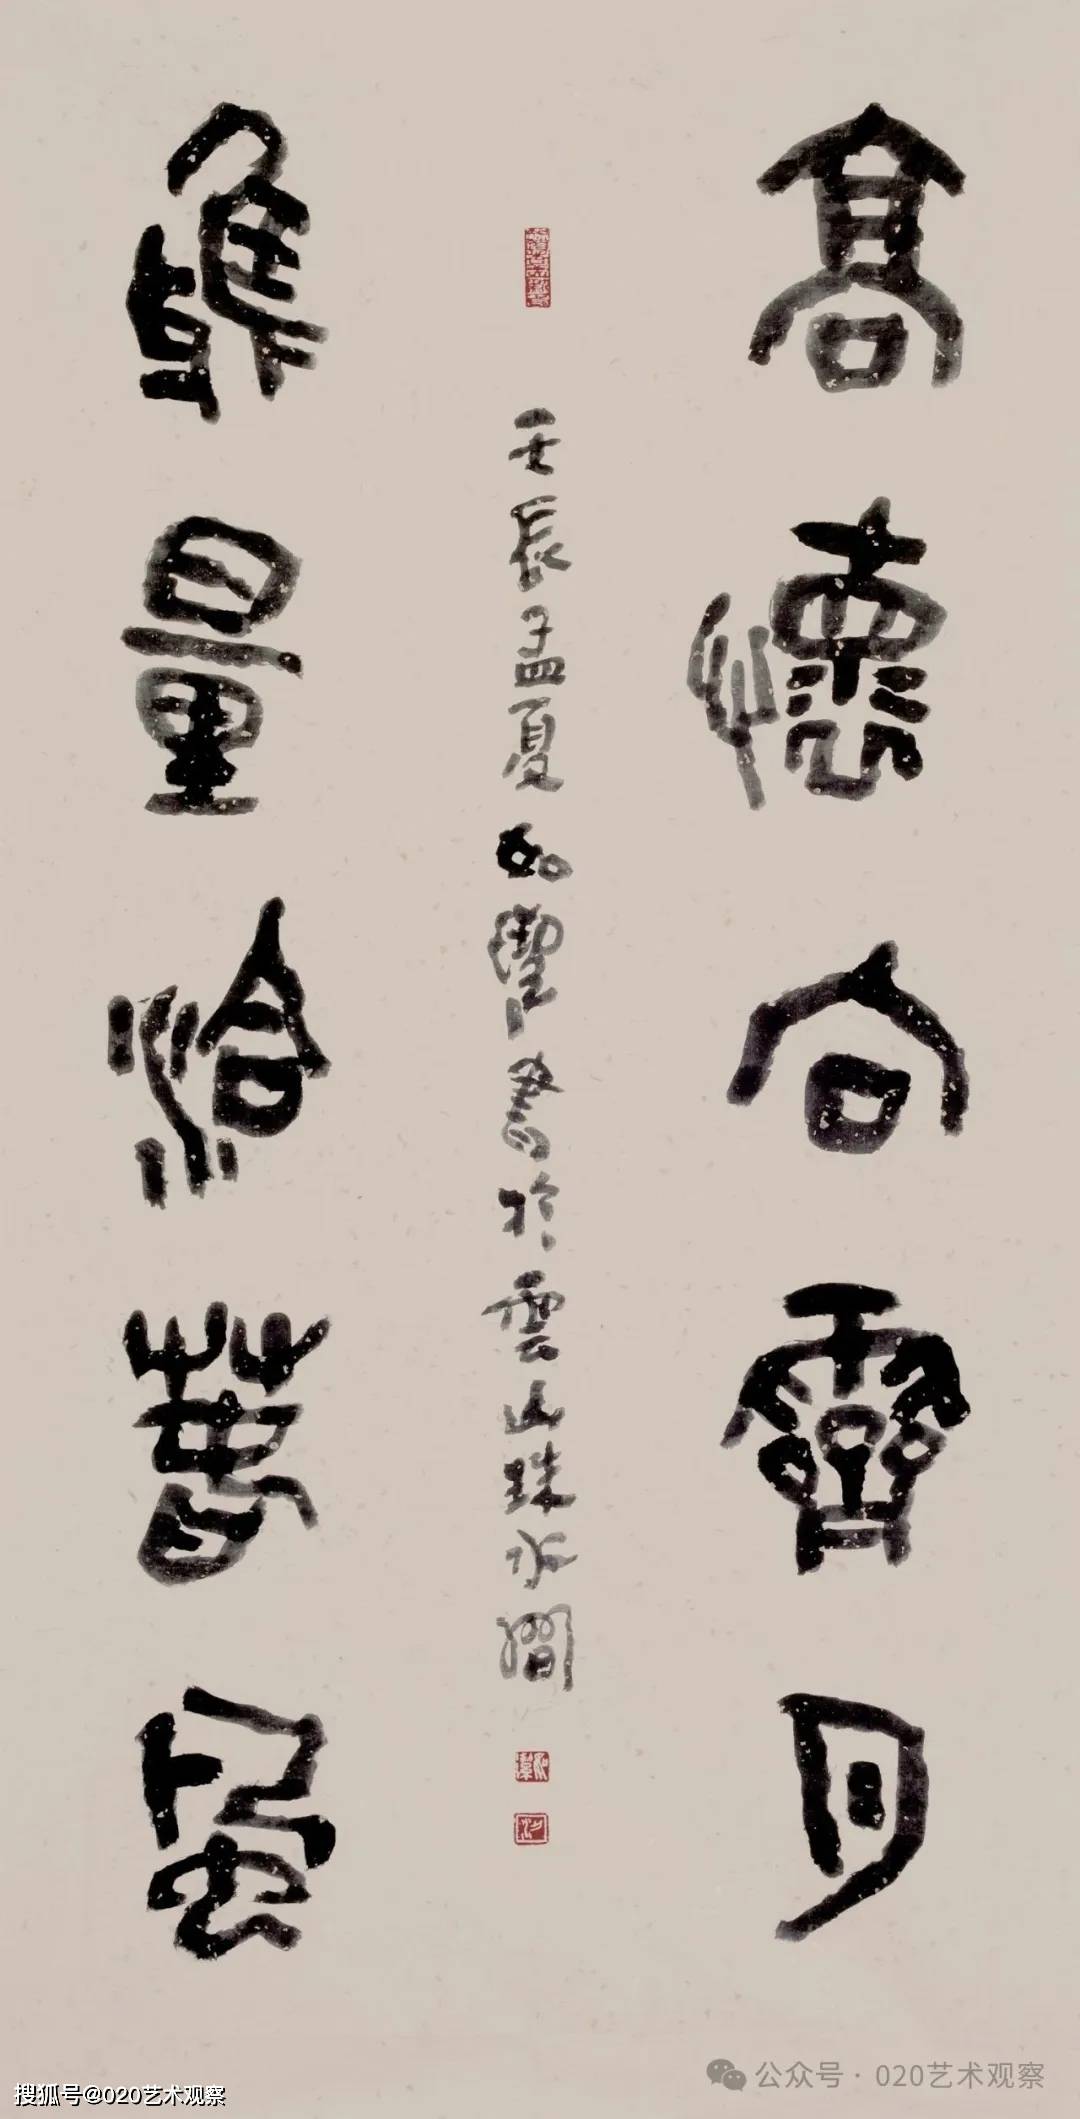 高懷向霽月
雅量洽春風
壬辰孟夏如潔書於雲山珠水間
公众号·020艺术观察
搜狐号@020艺术观察